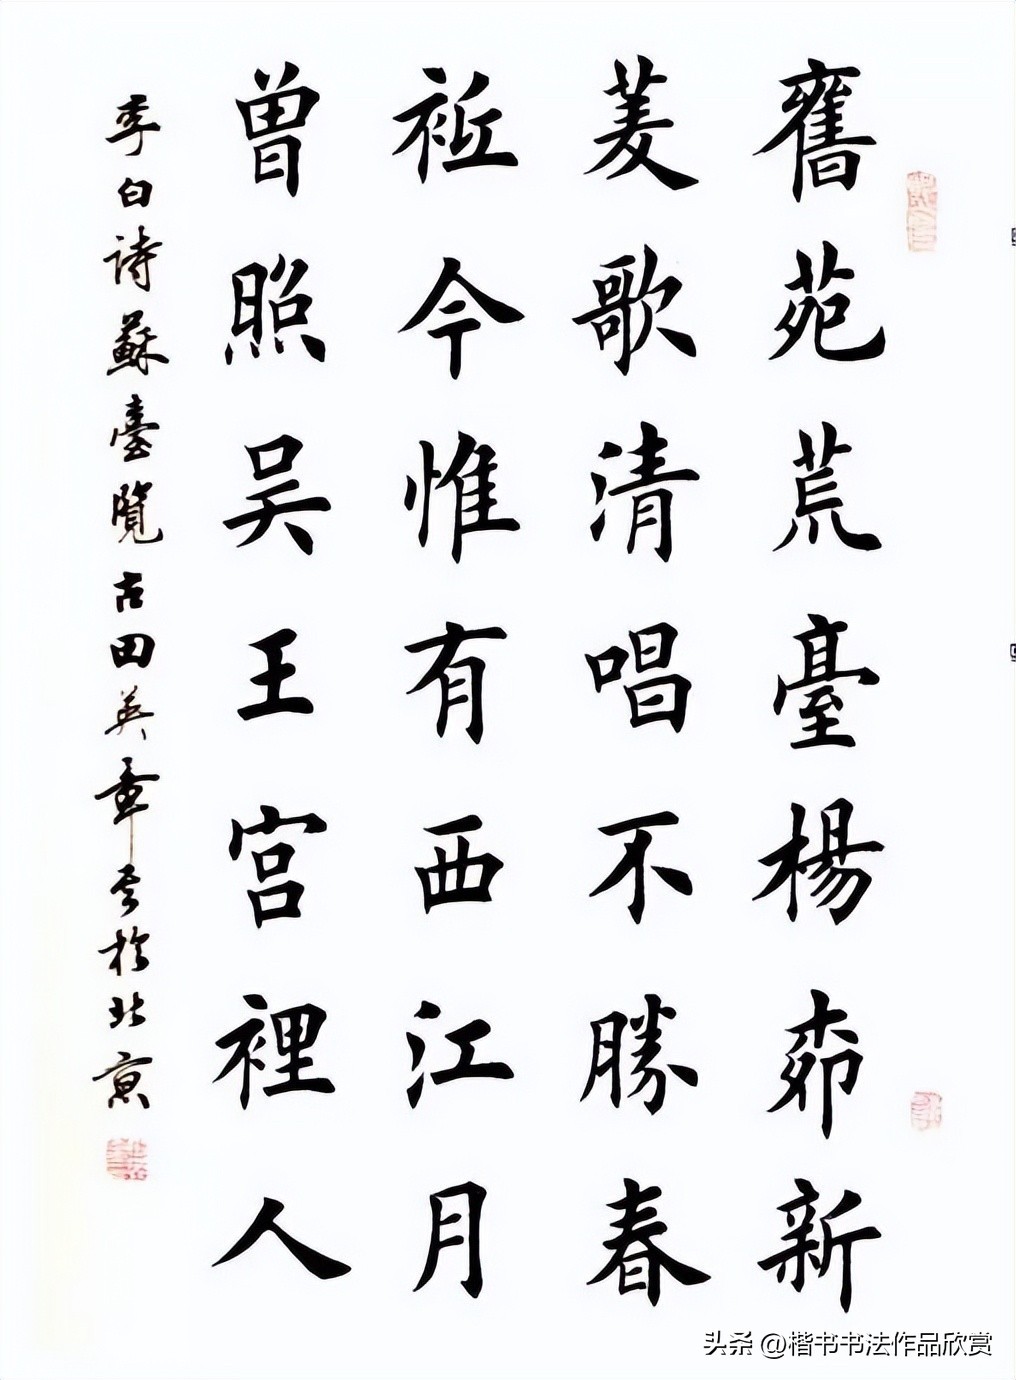 舊苑荒臺楊柳新
菱歌清唱不勝春
祗今惟有西江月
曾照吴王宫裡人
李白詩蘇臺覽古田英章書於北京
头条 @楷书书法作品欣赏